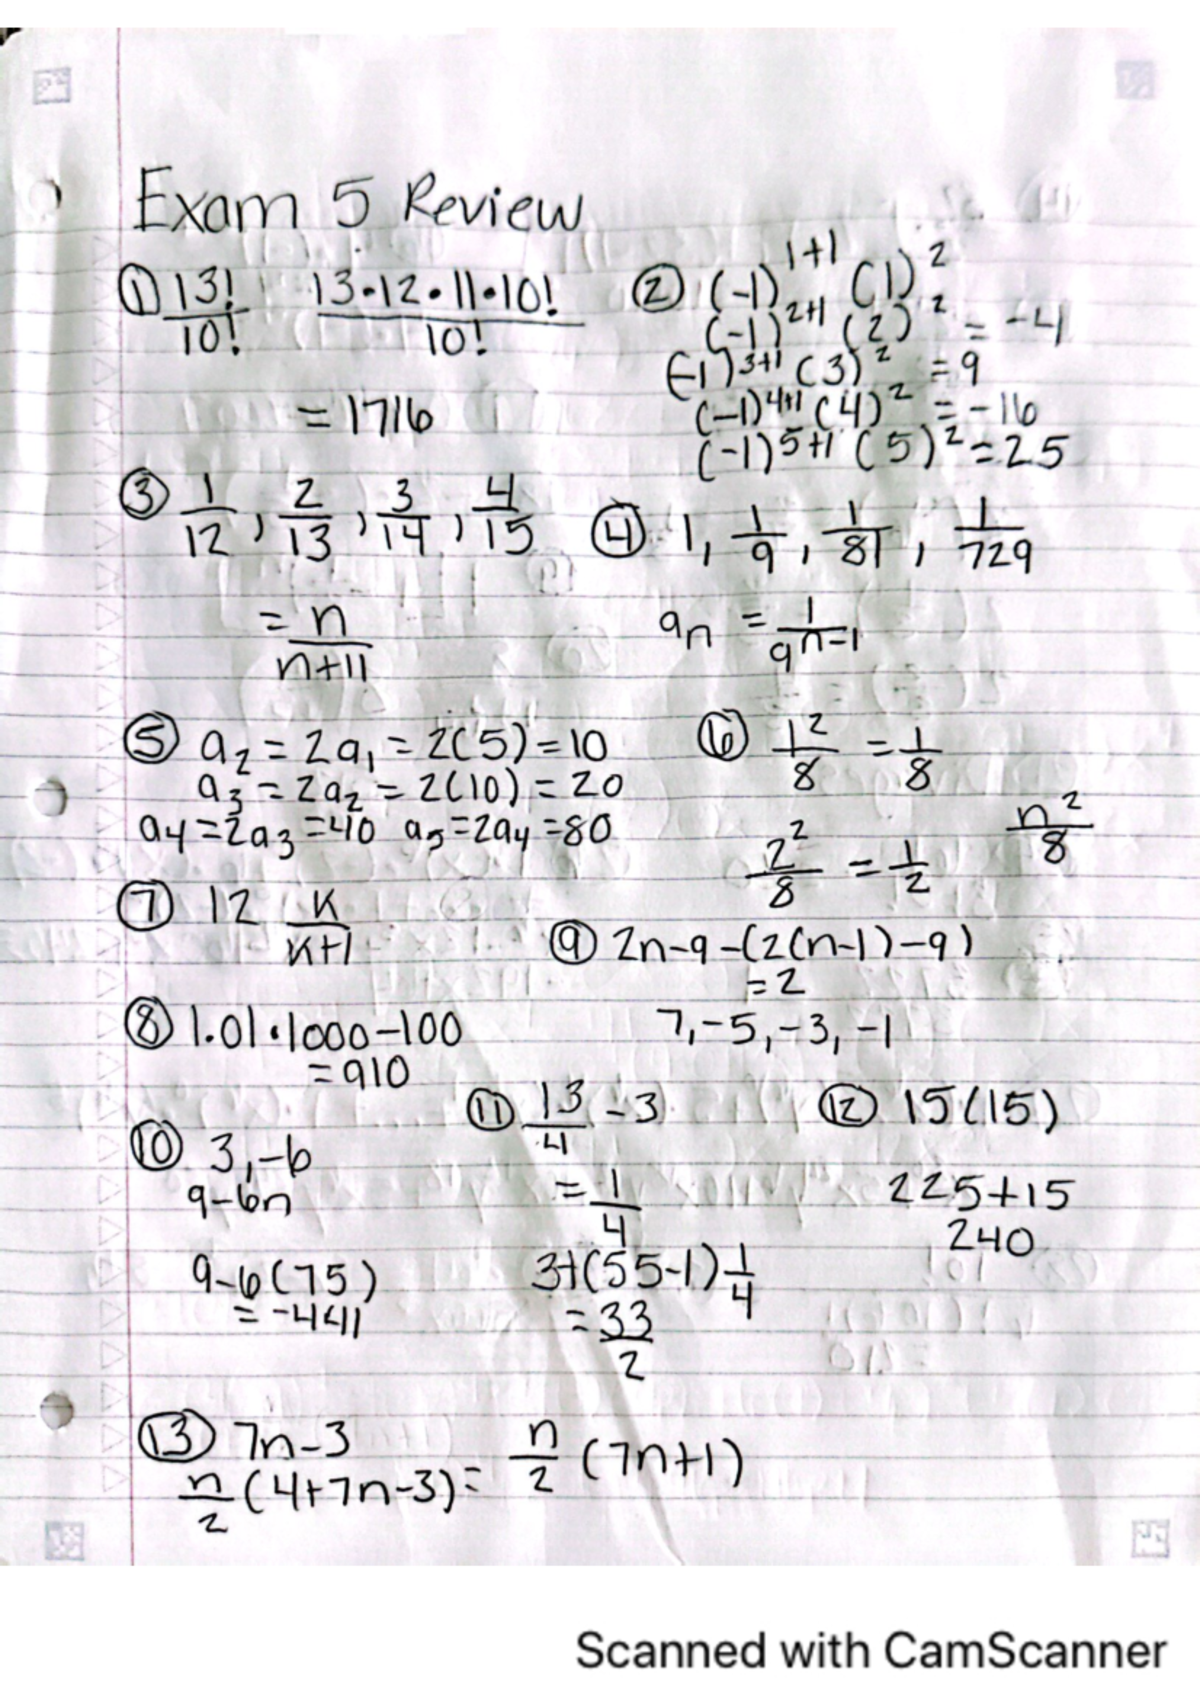 Exam 5 Review
① 13!/10! 13·12·11·10!/10!
= 1716
② (-1)^1+1 (1)^2
(-1)^2+1 (2)^2 = -4
(-1)^3+1 (3)^2 = 9
(-1)^4+1 (4)^2 = -16
(-1)^5+1 (5)^2 = 25
③ 1/12, 2/13, 3/14, 4/15
= n/n+11
④ 1, 1/9, 1/81, 1/729
an = 1/9^n-1
⑤ a2 = 2a1 = 2(5) = 10
a3 = 2a2 = 2(10) = 20
a4 = 2a3 = 40 a5 = 2a4 = 80
⑥ 1^2/8 = 1/8
2^2/8 = 1/2
n^2/8
⑦ 12 k/k+1
⑧ 1.01·1000-100
= 910
⑨ 2n-9-(2(n-1)-9)
= 2
7,-5,-3,-1
⑩ 3,-6
9-6n
9-6(75)
= -441
⑪ 13/4 - 3
= 1/4
3+(55-1) 1/4
= 33/2
⑫ 15(15)
225+15
240
⑬ 7n-3
n/2 (4+7n-3) = n/2 (7n+1)
Scanned with CamScanner